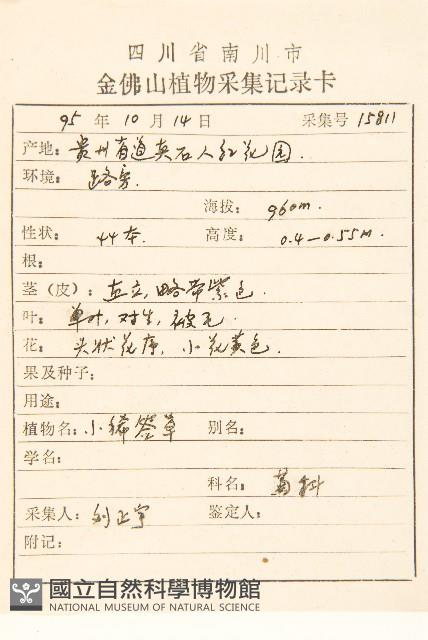 四川省南川市
金佛山植物采集记录卡
95 年 10 月 14 日 采集号 15811
产地: 贵州省道真石人红花园.
环境: 路旁.
海拔: 960m.
性状: 44本. 高度: 0.4—0.55M.
根:
茎(皮): 直立,略带紫色.
叶: 单叶,对生,被毛.
花: 头状花序,小花黄色.
果及种子:
用途:
植物名: 小豨莶草 别名:
学名:
科名: 菊科
采集人: 刘正宇 鉴定人:
附记:
國立自然科學博物館
NATIONAL MUSEUM OF NATURAL SCIENCE